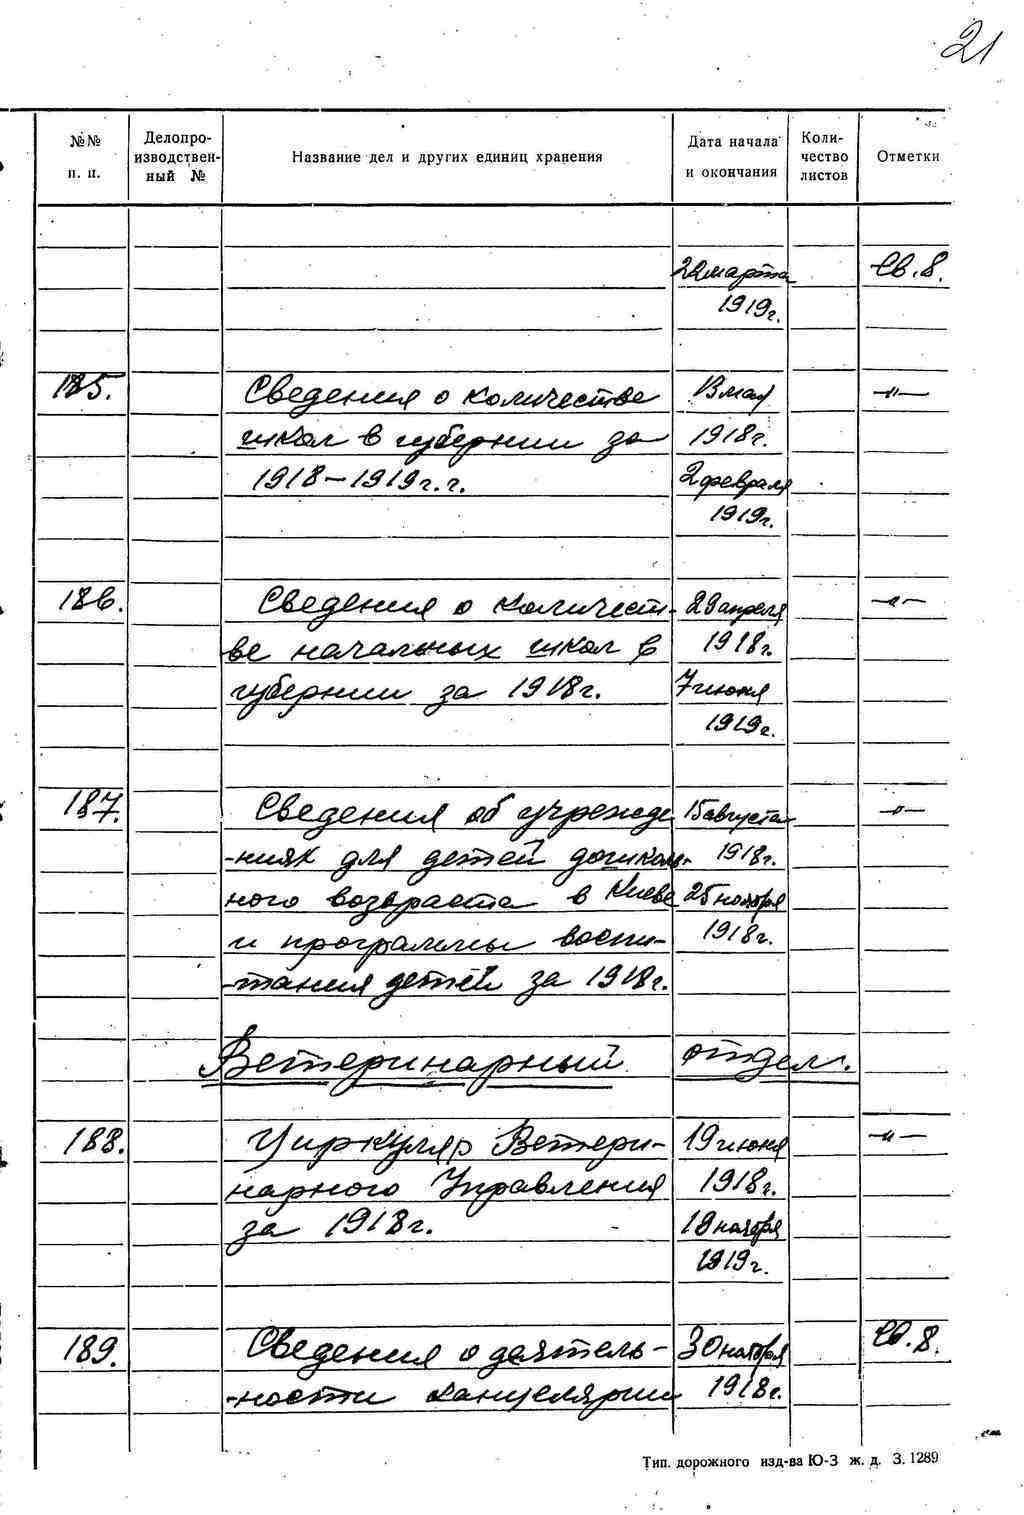 21
№№ п. п. Делопроизводственный № Название дел и других единиц хранения Дата начала и окончания Количество листов Отметки
22 марта Св. 8.
1919г.
185. Сведения о количестве 13 мая —"—
школ в губернии за 1918г.
1918-1919г.г. 2 февраля
1919г.
186. Сведения о количест- 29 апреля —"—
ве начальных школ в 1918г.
губернии за 1918г. 7 июня
1919г.
187. Сведения об учрежде 15 августа —"—
-ниях для детей дошколь- 1918г.
ного возраста в Киеве 25 ноября
и программы воспи- 1918г.
-тания детей за 1918г.
Ветеринарный отдел.
188. Циркуляр Ветери- 19 июня —"—
нарного Управления 1918г.
за 1918г. 19 ноября
1919г.
189. Сведения о деятель- 30 ноября Св. 8.
-ности канцелярии 1918г.
Тип. дорожного изд-ва Ю-З ж. д. З. 1289